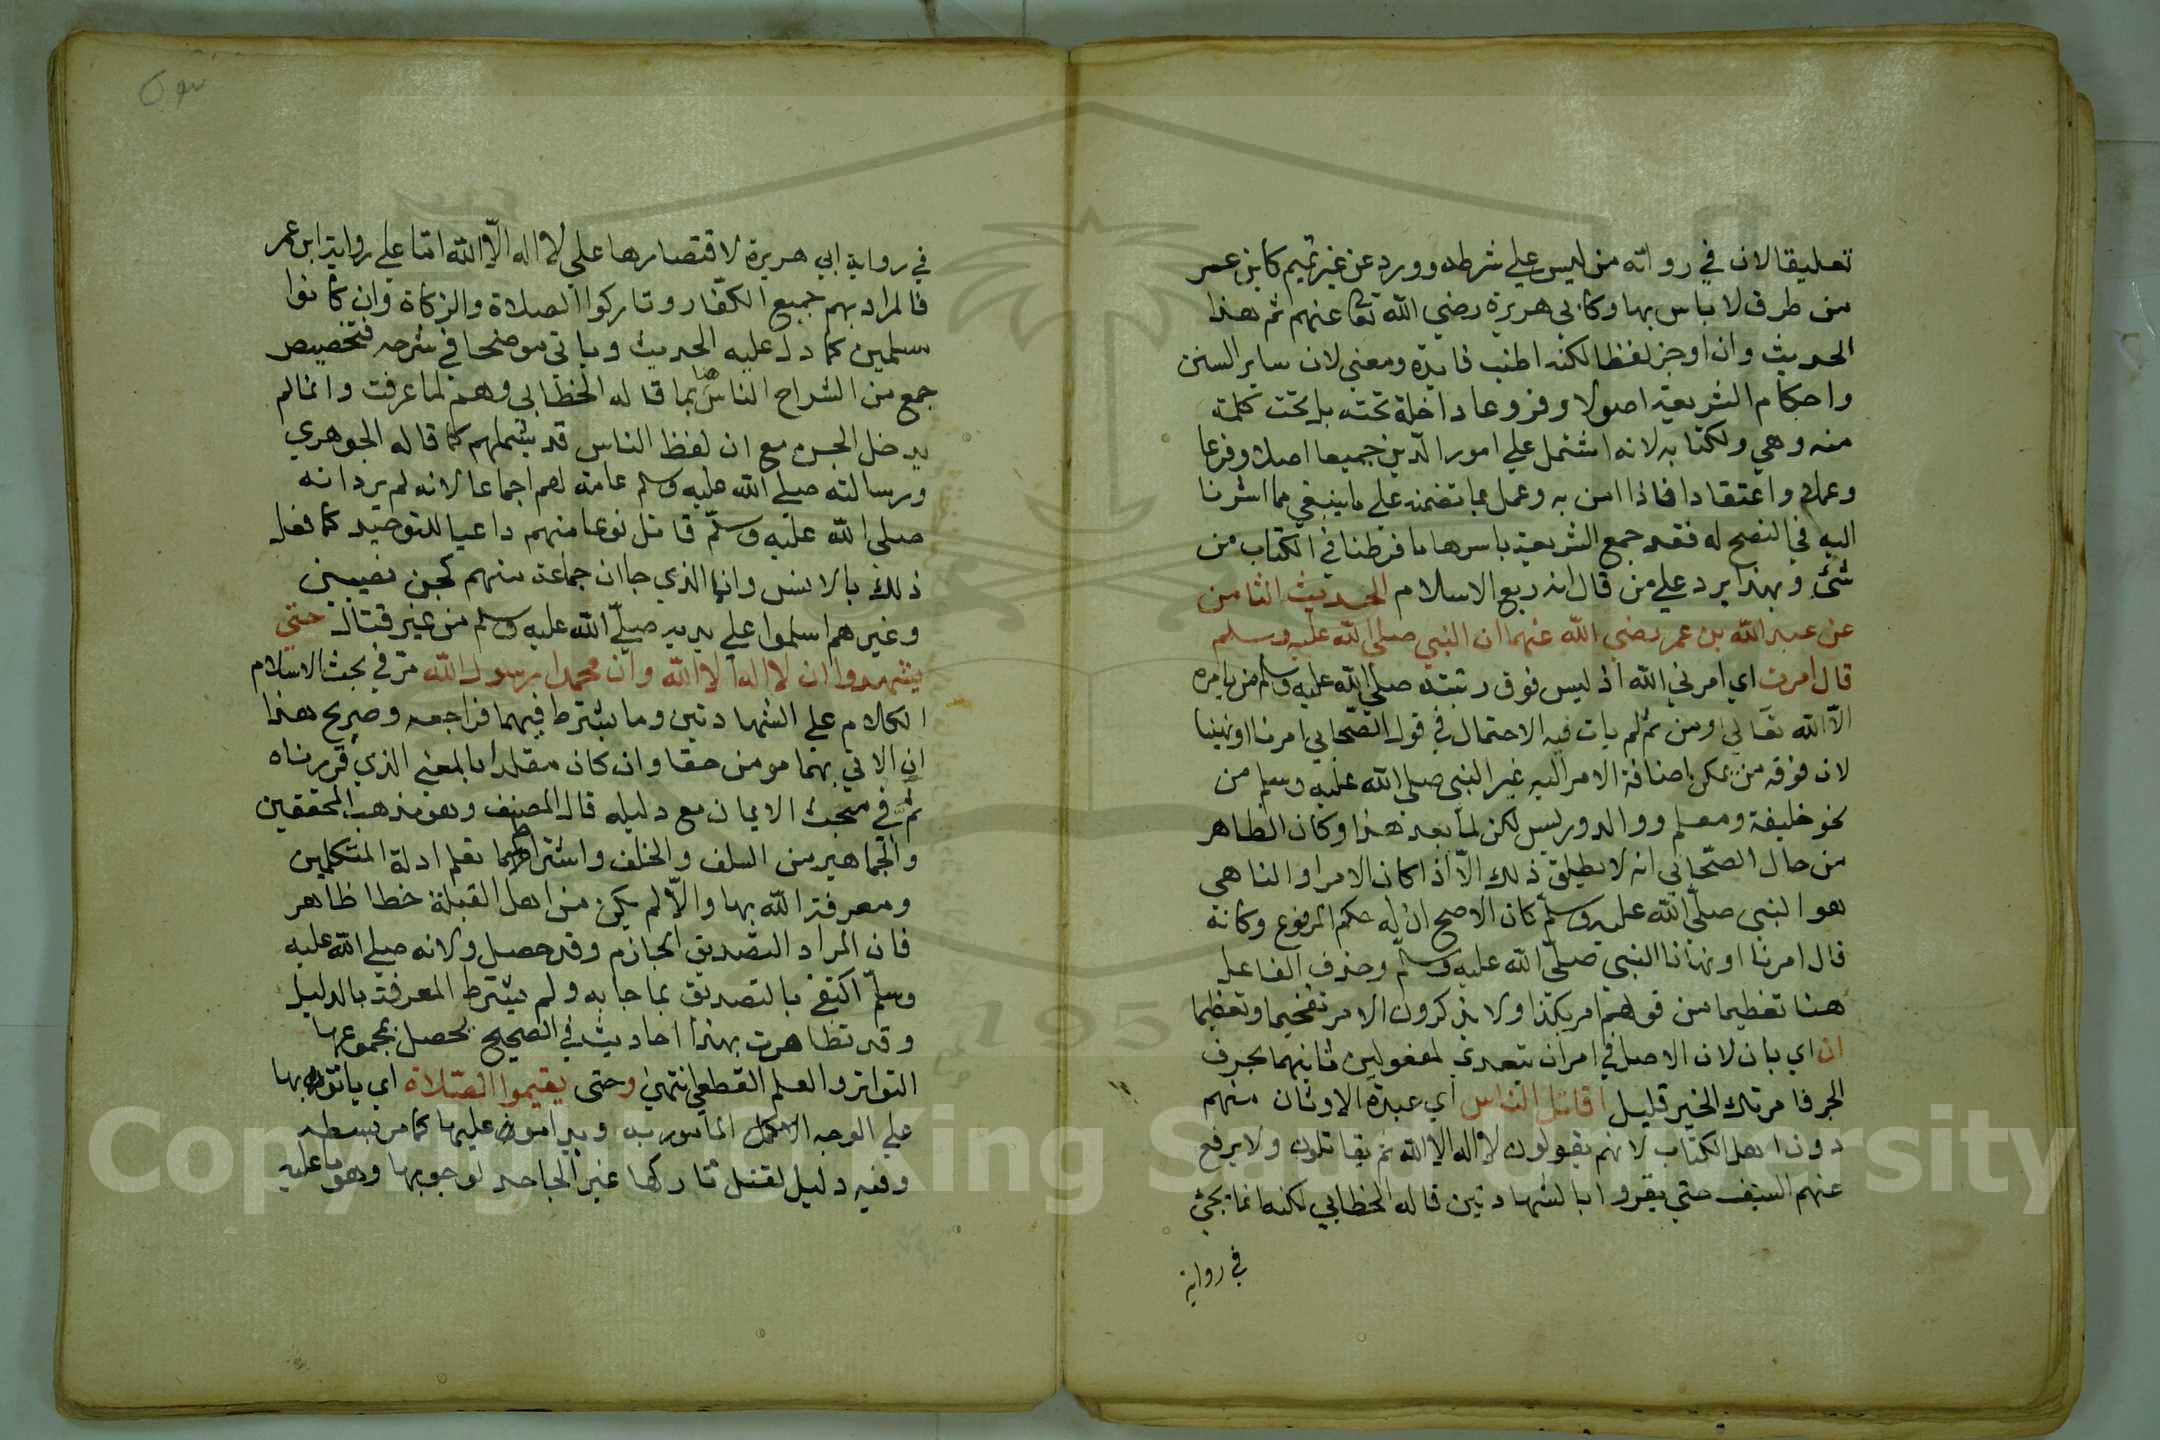 تعليقا لان في رواته من ليس علي شرطه وورد عن غير تميم كابن عمر
من طرق لا باس بها وكابي هريرة رضي الله تعا عنهم ثم هذا
الحديث وان اوجز لفظا لكنه اطنب فايدة ومعني لان ساير السنن
واحكام الشريعة اصولا وفروعا داخلة تحته بل تحت كلمة
منه وهي ولكتابه لانه اشتمل علي امور الدين جميعا اصلا وفرعا
وعملا واعتقادا فاذا امن به وعمل بما تضمنه علي ما ينبغي مما اشرنا
اليه في النصح له فقد جمع الشريعة باسرها ما فرطنا في الكتاب من
شئ وبهذا يرد علي من قال انه ربع الاسلام الحديث الثامن
عن عبد الله بن عمر رضي الله عنهما ان النبي صلي الله عليه وسلم
قال امرت اي امرني الله اذ ليس فوق رتبته صلي الله عليه وسلم من يامره
الا الله تعالي ومن ثم لم يات فيه الاحتمال في قول الصحابي امرنا او نهينا
لان فوقه من يمكن اضافة الامر اليه غير النبي صلي الله عليه وسلم من
نحو خليفة ومعلم ووالد وريس لكن لما بعد هذا وكان الظاهر
من حال الصحابي انه لا يطلق ذلك الا اذا كان الامر او الناهي
هو النبي صلي الله عليه وسلم كان الاصح ان له حكم المرفوع وكانه
قال امرنا او نهانا النبي صلي الله عليه وسلم وحذف الفاعل
هنا تعظيما من قولهم امر بكذا ولا يذكرون الامر تفخيما وتعظيما
ان اي بان لان الاصل في امر ان يتعدي لمفعولين ثانيهما بحرف
الجر فامرتك الخير قليل اقاتل الناس اي عبدة الاوثان منهم
دون اهل الكتاب لانهم يقولون لا اله الا الله ثم يقاتلون ولا يرفع
عنهم السيف حتي يقروا بالشهادتين قاله الخطابي لكنه انما يجئ
في رواية
في رواية ابي هريرة لاقتصارها علي لا اله الا الله اما علي رواية ابن عمر
فالمراد بهم جميع الكفار وتاركوا الصلاة والزكاة وان كانوا
مسلمين كما دل عليه الحديث وياتي موضحا في شرحه فتخصيص
جمع من الشراح الناس هنا بما قاله الخطابي وهم لما عرفت وانما لم
يدخل الجن مع ان لفظ الناس قد يشملهم كما قاله الجوهري
ورسالته صلي الله عليه وسلم عامة لهم اجماعا لانه لم يرد انه
صلي الله عليه وسلم قاتل نوعا منهم داعيا للتوحيد كما فعل
ذلك بالانس وانما الذي جا ان جماعة منهم كجن نصيبين
وغيرهم اسلموا علي يديه صلي الله عليه وسلم من غير قتال حتي
يشهدوا ان لا اله الا الله وان محمدا رسول الله مر في بحث الاسلام
الكلام علي الشهادتين وما يشترط فيهما فراجعه وصريح هذا
ان الاتي بهما مومن حقا وان كان مقلدا بالمعني الذي قررناه
ثم في مبحث الايمان مع دليله قال المصنف وهو مذهب المحققين
والجماهير من السلف والخلف واشتراط تعلم ادلة المتكلمين
ومعرفة الله بها والا لم يكن من اهل القبلة خطا ظاهر
فان المراد التصديق الجازم وقد حصل ولانه صلي الله عليه
وسلم اكتفي بالتصديق بما جا به ولم يشترط المعرفة بالدليل
وقد تظاهرت بهذا احاديث في الصحيح يحصل بمجموعها
التواتر والعلم القطعي انتهي وحتي يقيموا الصلاة اي ياتون بها
علي الوجه الاكمل المامور به ويداموون عليها كما مر بسطه
وفيه دليل لقتل تاركها غير الجاحد لوجوبها وهو ما عليه